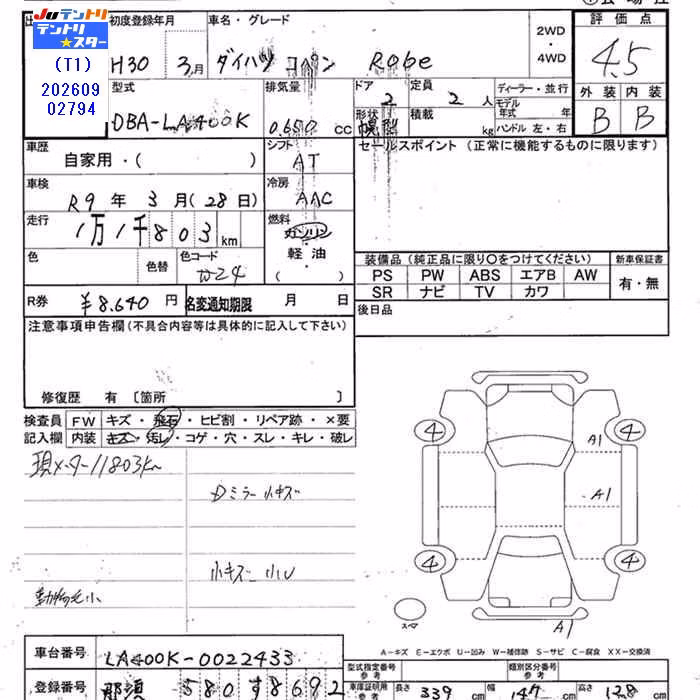 JUテントリ
テントリ★スター
(T1)
202609
02794
初度登録年月
H30 3月
車名・グレード
ダイハツ コペン Robe
2WD
・
4WD
評価点
4.5
外装 内装
B B
型式
DBA-LA400K
排気量
0.650 cc
ドア
2
形状
定員
2人
積載
kg
ディーラー・並行
モデル年式 年
ハンドル 左・右
車歴
自家用・( )
シフト
AT
セールスポイント (正常に機能するものに限ります)
車検
R9年 3月(28日)
冷房
AAC
走行
1万1千803km
燃料
ガソリン
・
軽油
( )
色
色替
色コード
装備品 (純正品に限り○をつけてください)
新車保証書
PS PW ABS エアB AW
SR ナビ TV カワ
有・無
R券
¥8.640円
名変通知期限 月 日
後日品
注意事項申告欄 (不具合内容等は具体的に記入して下さい)
修復歴 有 〔箇所 〕
検査員
記入欄
FW キズ・飛石・ヒビ割・リペア跡・×要
内装 キズ・汚レ・コゲ・穴・スレ・キレ・破レ
現メーター11803km
Dミラー小キズ
小キズ 小U
動物毛小
4 4
A1
A1
4 4
スマ
A1
A-キズ E-エクボ U-凹み W-補修跡 S-サビ C-腐食 XX-交換済
車台番号
LA400K-0022433
登録番号
那須 580 す 8692
型式指定番号
参考
類別区分番号
参考
車庫証明用
参考
長さ 339cm
幅 147cm
高さ 128cm